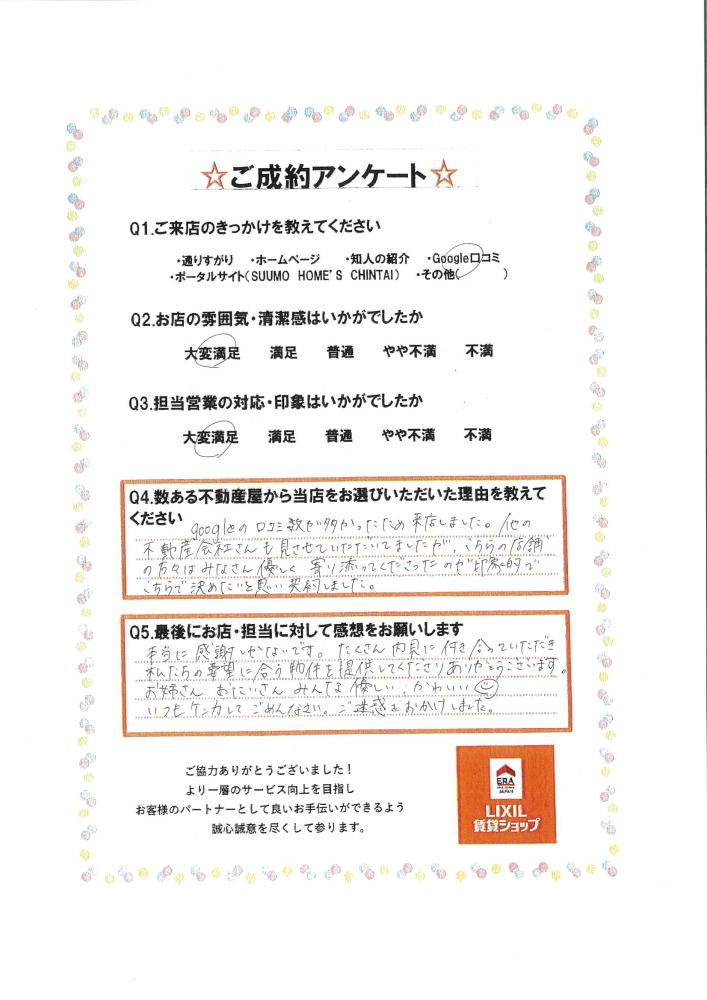 ☆ご成約アンケート☆
Q1.ご来店のきっかけを教えてください
・通りすがり ・ホームページ ・知人の紹介 ・Google口コミ
・ポータルサイト(SUUMO HOME'S CHINTAI) ・その他( )
Q2.お店の雰囲気・清潔感はいかがでしたか
大変満足 満足 普通 やや不満 不満
Q3.担当営業の対応・印象はいかがでしたか
大変満足 満足 普通 やや不満 不満
Q4.数ある不動産屋から当店をお選びいただいた理由を教えて
ください
googleの口コミ数が多かったため来店しました。他の
不動産会社さんも見させていただいてましたが、こちらの店舗
の方々はみなさん優しく寄り添ってくださったのが印象的で
こちらで決めたいと思い契約しました。
Q5.最後にお店・担当に対して感想をお願いします
本当に感謝しかないです。たくさん内見に付き合っていただき
私たちの要望に合う物件を提供してくださりありがとうございます。
お姉さん おにいさん みんな優しい、かわいい☺
いつもケンカしてごめんなさい。ご迷惑をおかけしました。
ご協力ありがとうございました!
より一層のサービス向上を目指し
お客様のパートナーとして良いお手伝いができるよう
誠心誠意を尽くして参ります。
ERA
JAPAN
LIXIL
賃貸ショップ